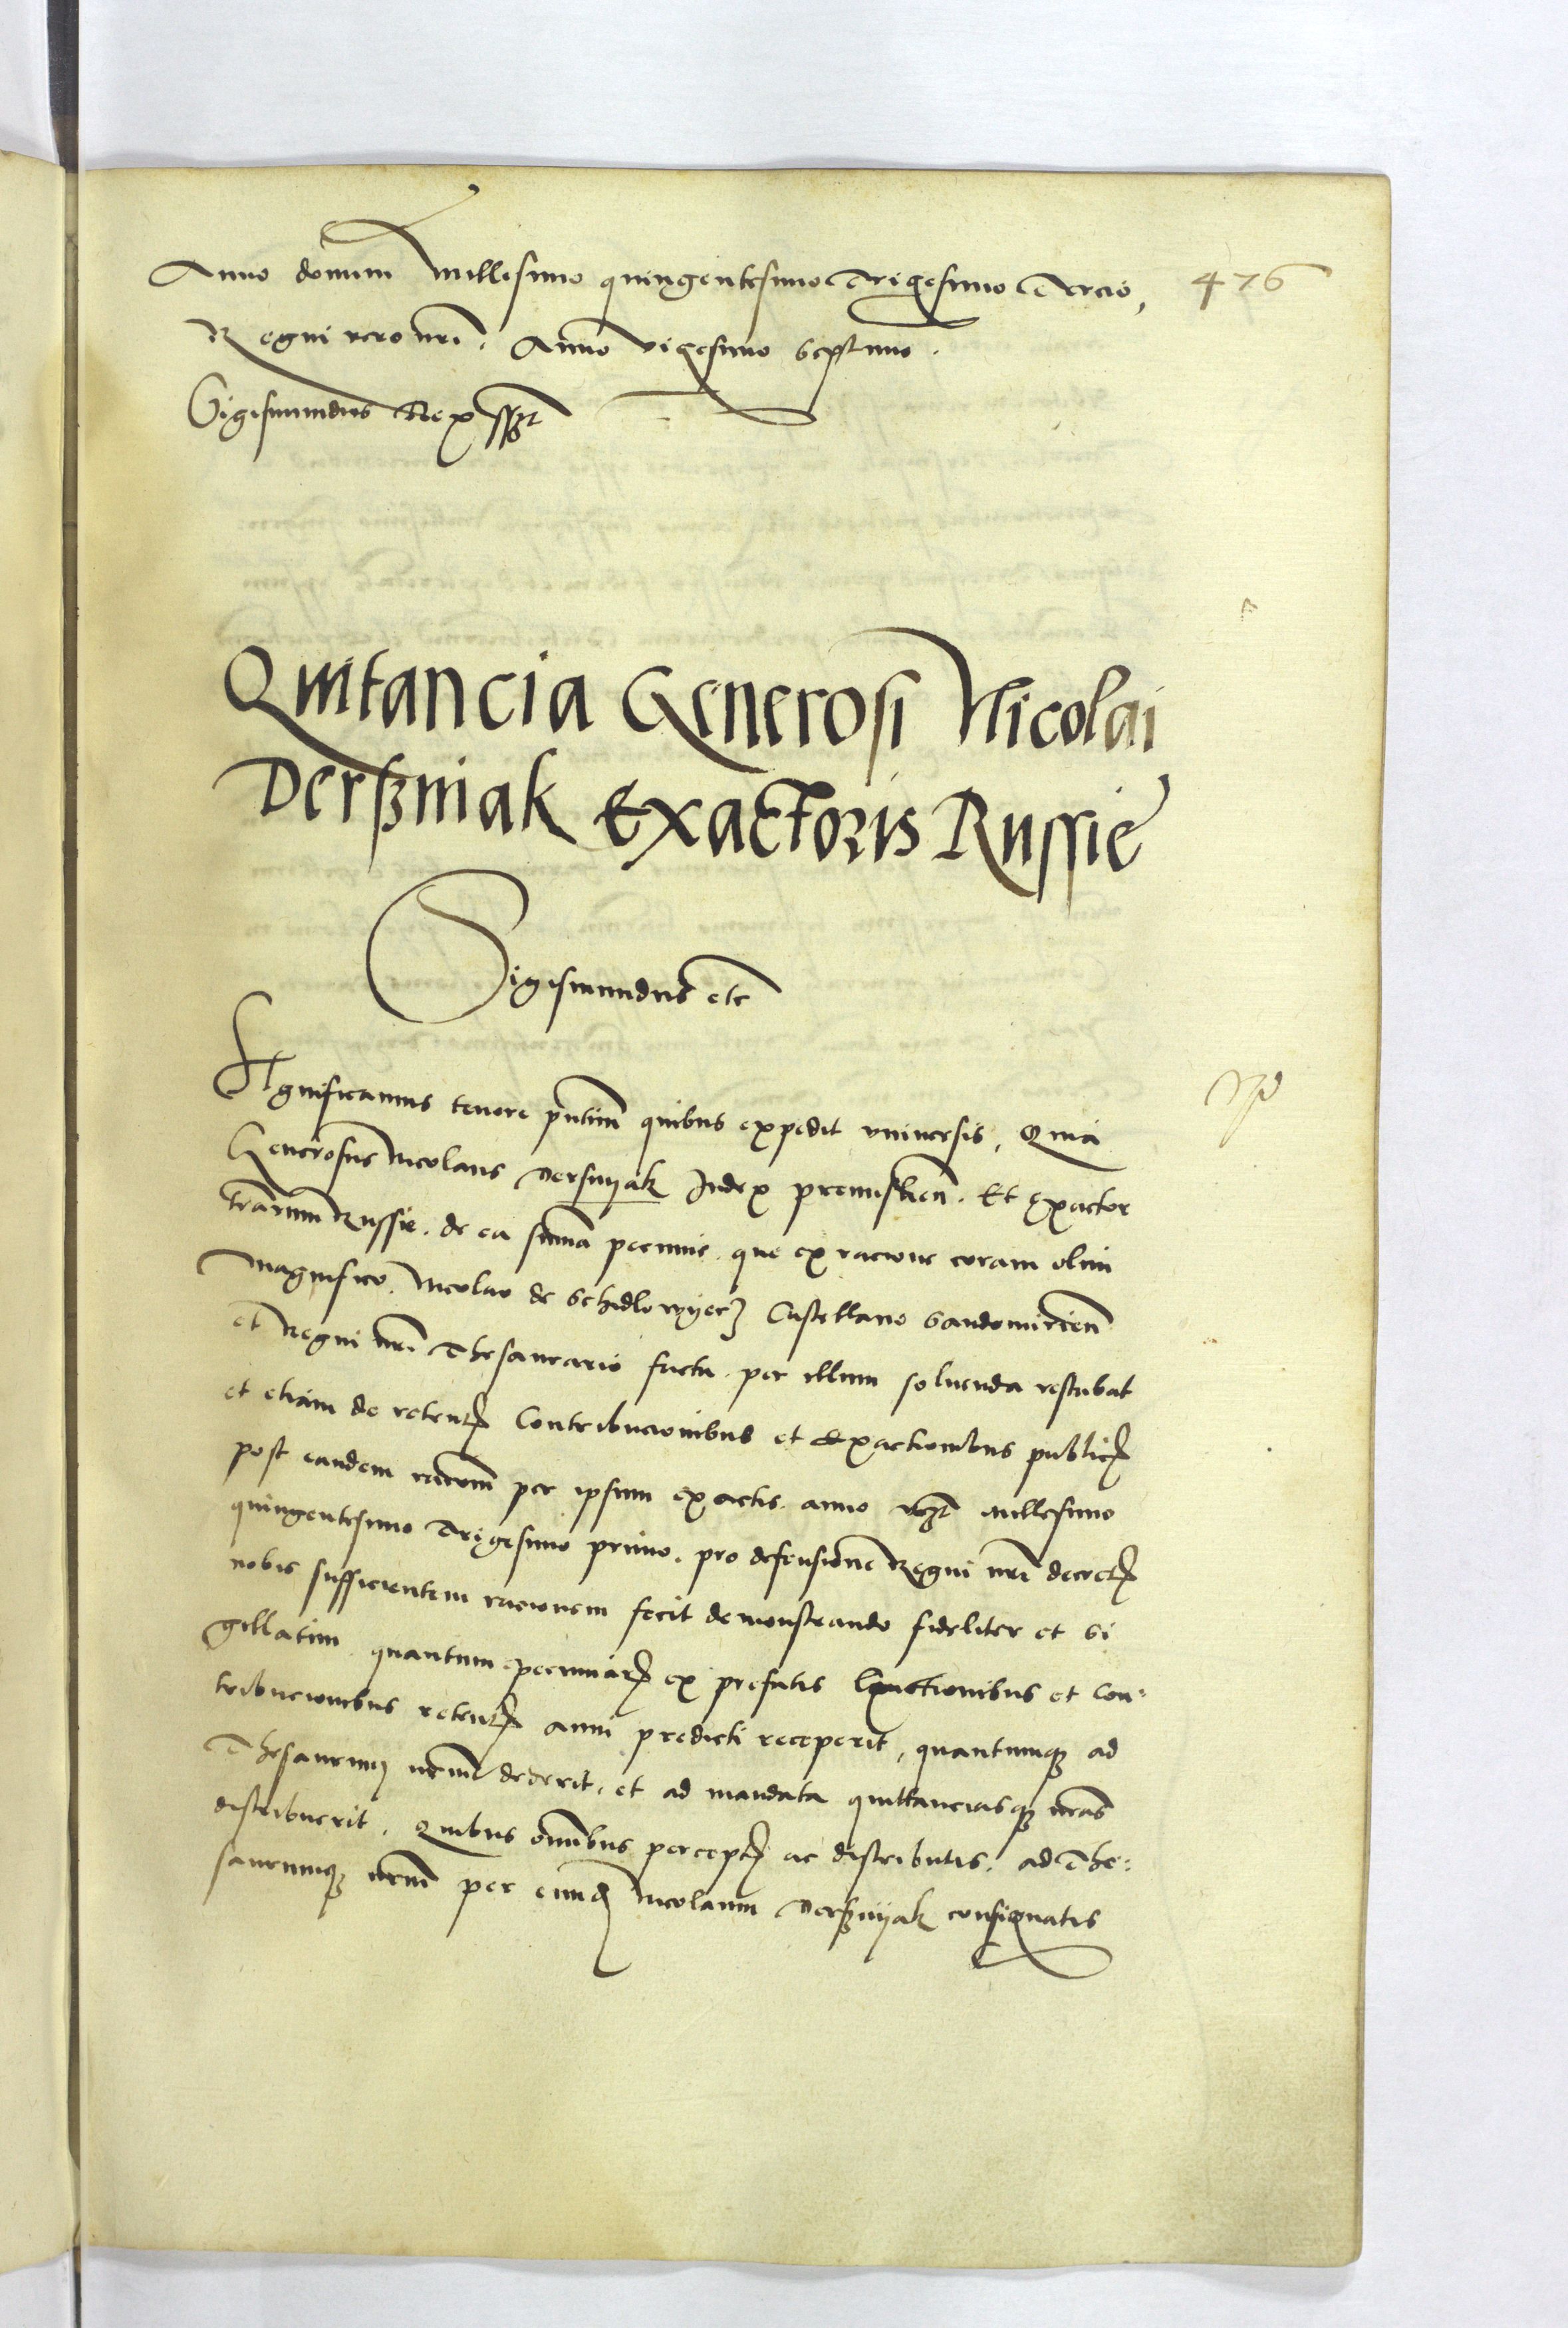 Anno domini Millesimo quingentesimo Trigesimo Tercio, 476
Regni vero nri. Anno vigesimo septimo.
Sigismundus Rex sszt
Quitancia Generosi Nicolai
Derßniak Exactoris Russie
Sigismundus etc
Significamus tenore pntium quibus expedit vniuersis, Quia
Generosus Nicolaus Dersnyak Iudex premislien. Et Exactor
trarum Russie. de ea suma pecunie que ex racione coram olim
Magnifico Nicolao de Schidlowyecz Castellano Sandomirien
et Regni nri Thesaurario facta per illum soluenda restabat
et etiam de retent Contribucionibus et Exactionibus public
post eandem racionem per ipsum exactis anno vzt Millesimo
quingentesimo Trigesimo primo. pro defensione Regni nri decret
nobis sufficientem racionem fecit demonstrando fideliter et Si
gillatim quantum pecuniar ex prefatis Exactionibus et Con=
tribucionibus retent anni predicti receperit, quantumq ad
Thesaurum nrum dederit, et ad mandata quittanciasq nras
distribuerit. Quibus omnibus percept ac distributis, ad The=
saurumq nrum per eund Nicolaum Derßnyak consignatis